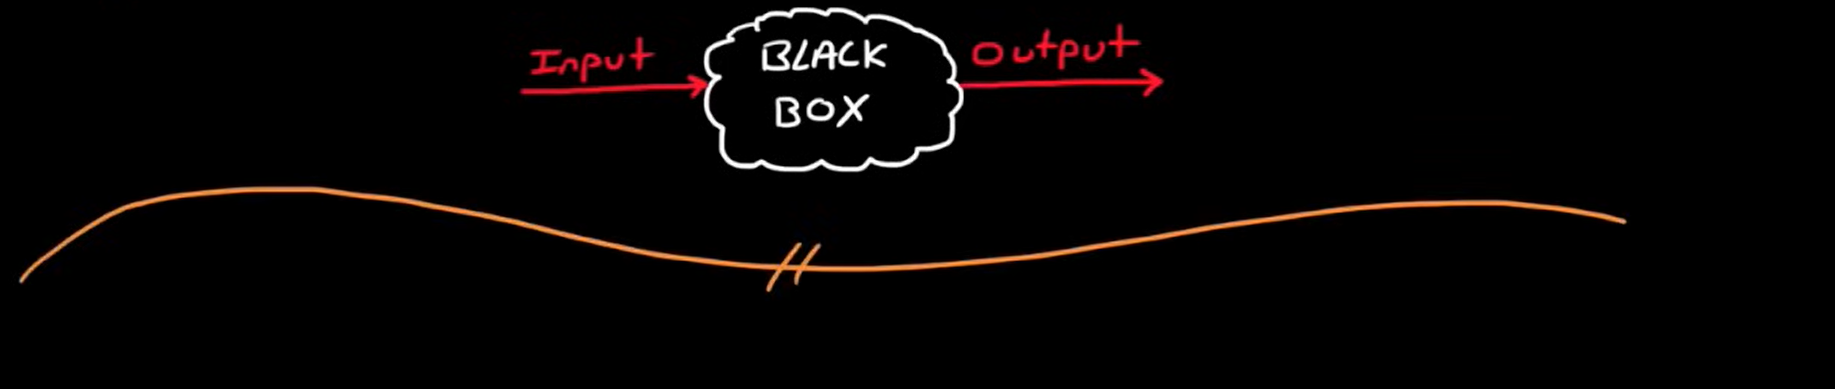 Input
BLACK
BOX
Output